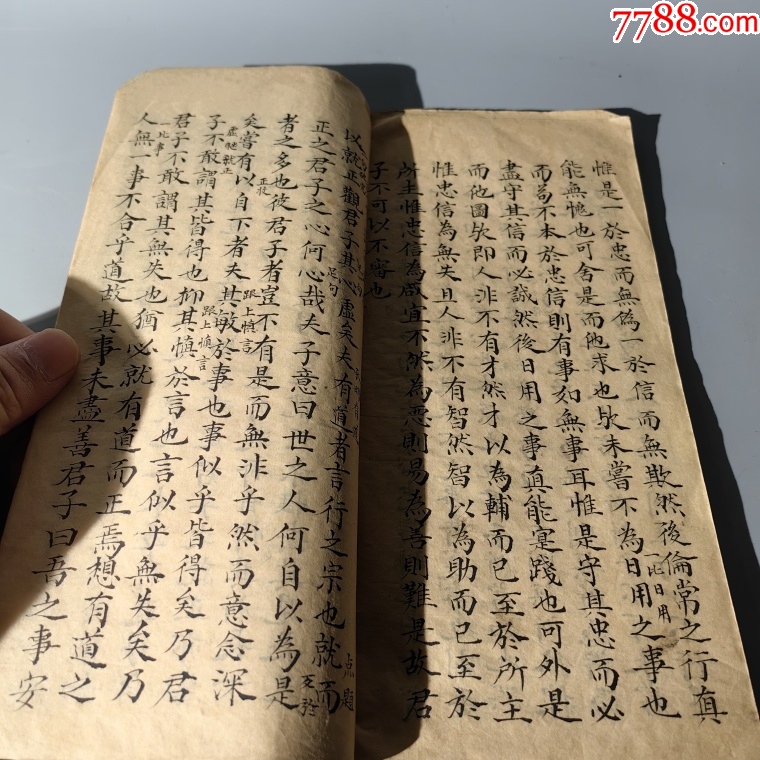 7788.com
惟是一於忠而無偽一於信而無欺然後倫常之行真
能無愧也可舍是而他求也歟未嘗不為日用之事也
一比日用
而苟不本於忠信則有事如無事耳惟是守其忠而必
盡守其信而必誠然後日用之事真能寔踐也可外是
而他圖歟即人非不有才然才以為輔而已至於所主
惟忠信為無失且人非不有智然智以為助而已至於
所主惟忠信為咸宜不然為惡則易為善則難是故君
子不可以不審也
以就正觀君子其心虛矣夫有道者言行之宗也就而
點題
正之君子之心何心哉夫子意曰世之人何自以為是
者之多也彼君子者豈不有是而無非乎然而意念深
正投
矣嘗有以自下者夫其敏於事也事似乎皆得矣乃君
虛虢就正
跟上慎言
子不敢謂其皆得也抑其慎於言也言似乎無失矣乃
跟上慎言
君子不敢謂其無失也猶必就有道而正焉想有道之
一比事
人無一事不合乎道故其事未盡善君子曰吾之事安